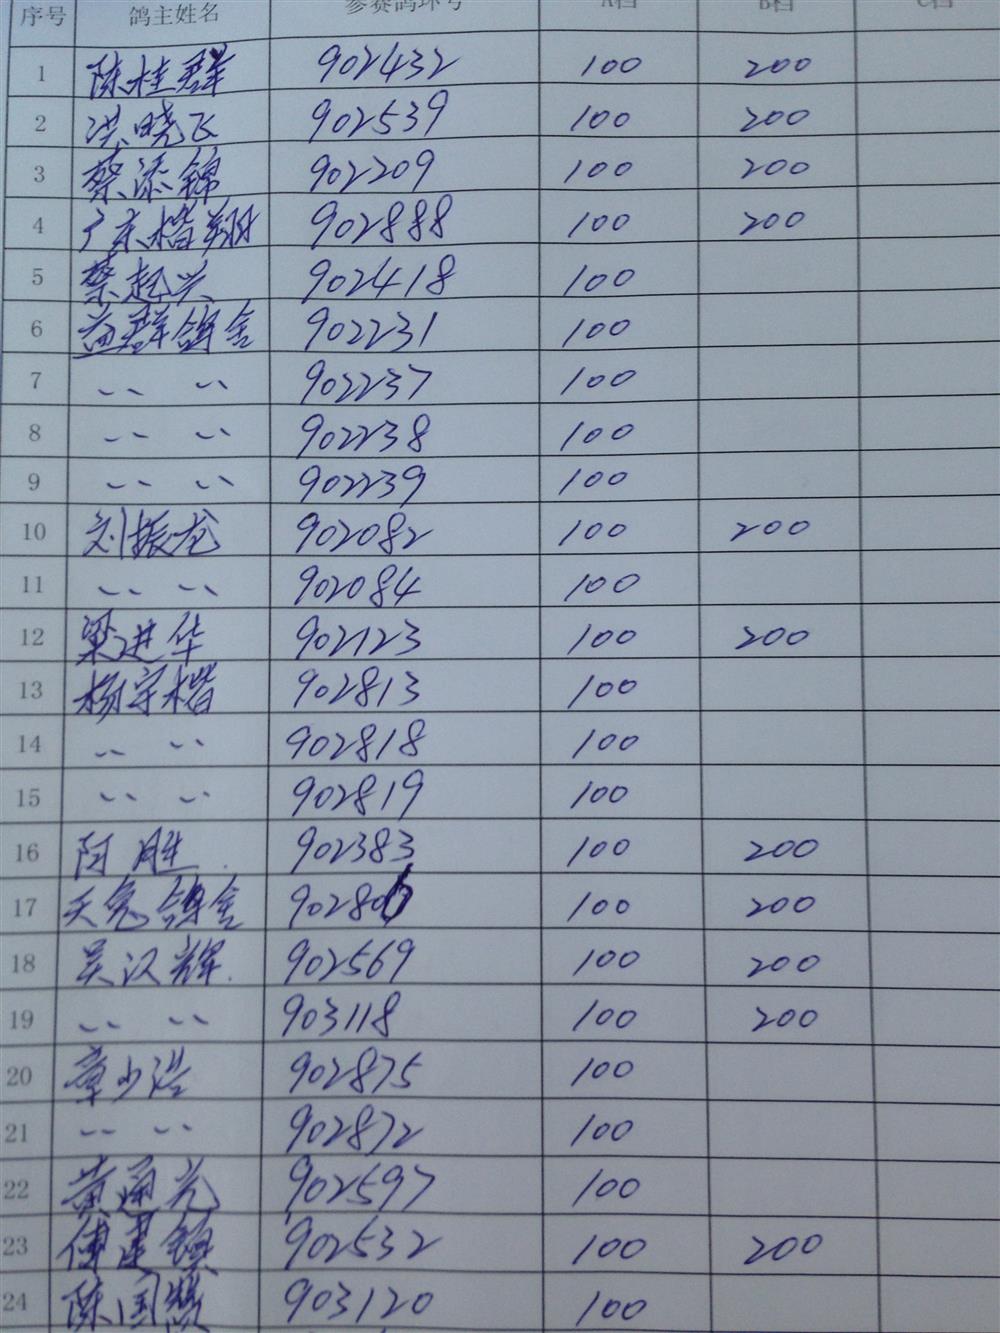 序号 鸽主姓名 参赛鸽环号 A档 B档 C档
1 陈桂群 902432 100 200
2 洪晓飞 902539 100 200
3 蔡添锦 902209 100 200
4 广东楷翔 902888 100 200
5 蔡起兴 902418 100
6 益群鸽舍 902231 100
7 〃 〃 902237 100
8 〃 〃 902238 100
9 〃 〃 902239 100
10 刘振龙 902082 100 200
11 〃 〃 902084 100
12 梁进华 902123 100 200
13 杨宇楷 902813 100
14 〃 〃 902818 100
15 〃 〃 902819 100
16 阿胜 902383 100 200
17 天兔鸽舍 100 200
18 吴汉辉 902569 100 200
19 〃 〃 903118 100 200
20 章少浩 902875 100
21 〃 〃 902872 100
22 黄通光 902597 100
23 傅建镇 902532 100 200
24 陈国赞 903120 100